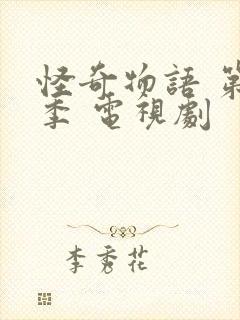 怪奇物語 第
季 電視劇
李秀花